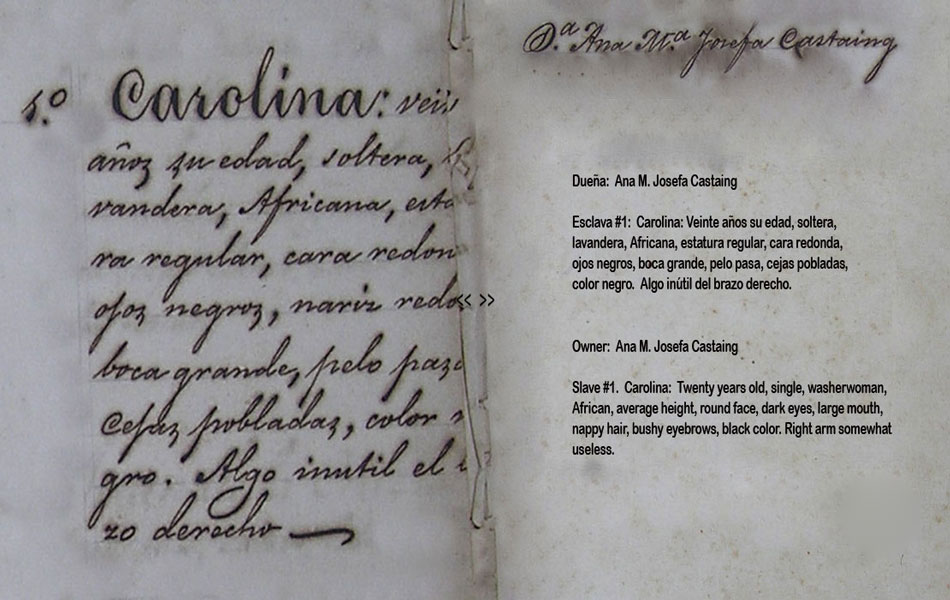 1.º Carolina: vein
años su edad, soltera,
vandera, Africana, esta
ra regular, cara redon
ojos negros, nariz redo
boca grande, pelo pasa
cejas pobladas, color n
gro. Algo inutil el
zo derecho
<< >>
D.ª Ana M.ª Josefa Castaing
Dueña: Ana M. Josefa Castaing
Esclava #1: Carolina: Veinte años su edad, soltera,
lavandera, Africana, estatura regular, cara redonda,
ojos negros, boca grande, pelo pasa, cejas pobladas,
color negro. Algo inútil del brazo derecho.
Owner: Ana M. Josefa Castaing
Slave #1. Carolina: Twenty years old, single, washerwoman,
African, average height, round face, dark eyes, large mouth,
nappy hair, bushy eyebrows, black color. Right arm somewhat
useless.